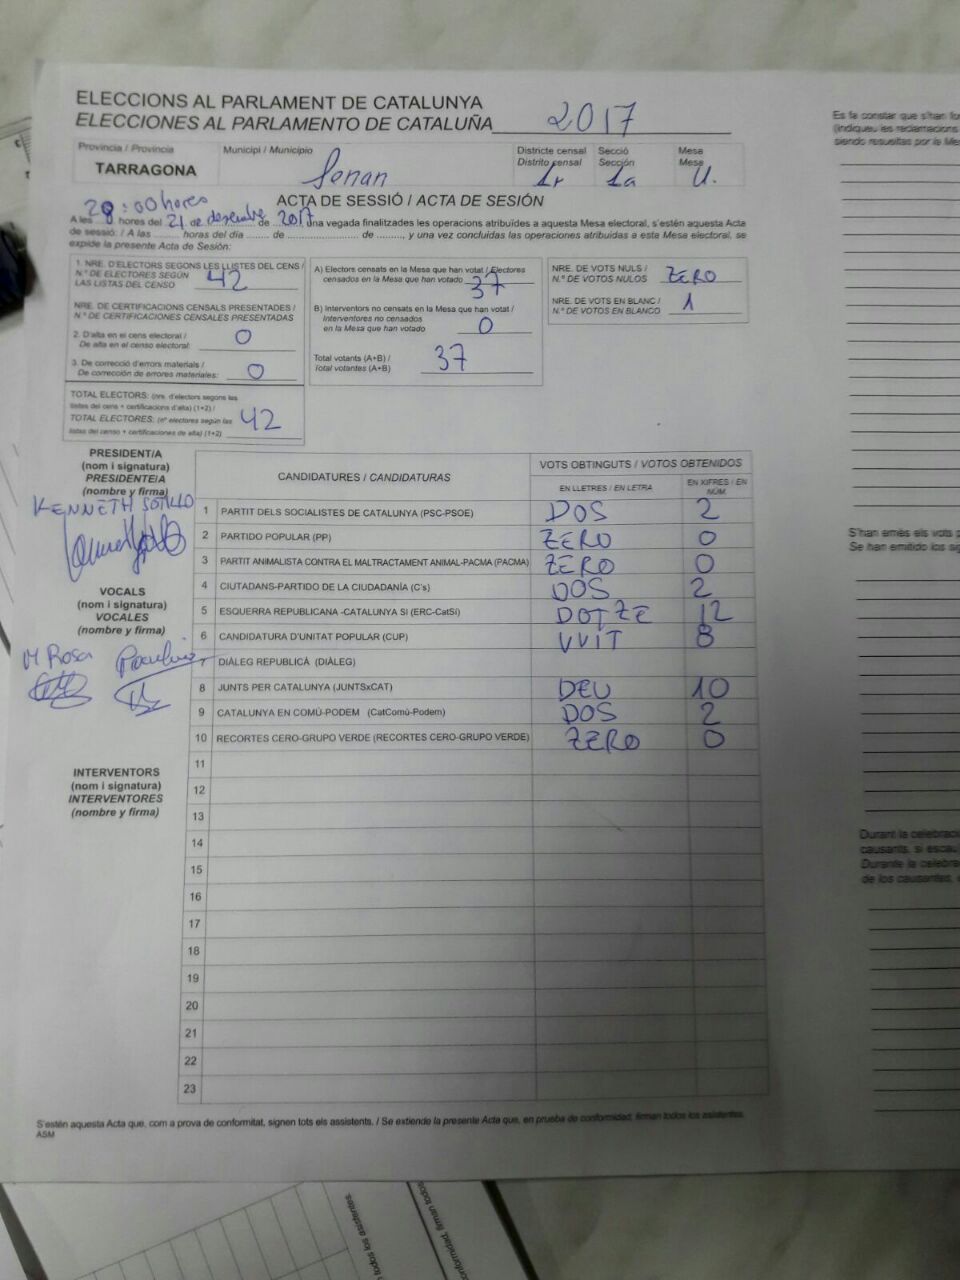 ELECCIONS AL PARLAMENT DE CATALUNYA
ELECCIONES AL PARLAMENTO DE CATALUÑA 2017
Provincia / Provincia
TARRAGONA
Municipi / Municipio
Senan
Districte censal
Distrito censal
1r
Secció
Sección
1a
Mesa
Mesa
U.
ACTA DE SESSIÓ / ACTA DE SESIÓN
A les 20:00 hores hores del 21 de desembre de 2017, una vegada finalitzades les operacions atribuïdes a aquesta Mesa electoral, s'estén aquesta Acta
de sessió: / A las ........ horas del día ........ de ........................ de ........, y una vez concluidas las operaciones atribuidas a esta Mesa electoral, se
expide la presente Acta de Sesión:
1. NRE. D'ELECTORS SEGONS LES LLISTES DEL CENS /
N.º DE ELECTORES SEGÚN
LAS LISTAS DEL CENSO 42
NRE. DE CERTIFICACIONS CENSALS PRESENTADES /
N.º DE CERTIFICACIONES CENSALES PRESENTADAS
2. D'alta en el cens electoral /
De alta en el censo electoral: 0
3. De correcció d'errors materials /
De corrección de errores materiales: 0
TOTAL ELECTORS: (nre. d'electors segons les
llistes del cens + certificacions d'alta) (1+2) /
TOTAL ELECTORES: (nº electores según las
listas del censo + certificaciones de alta) (1+2) 42
A) Electors censats en la Mesa que han votat / Electores
censados en la Mesa que han votado 37
B) Interventors no censats en la Mesa que han votat /
Interventores no censados
en la Mesa que han votado 0
Total votants (A+B) /
Total votantes (A+B) 37
NRE. DE VOTS NULS /
N.º DE VOTOS NULOS ZERO
NRE. DE VOTS EN BLANC /
N.º DE VOTOS EN BLANCO 1
PRESIDENT/A
(nom i signatura)
PRESIDENTE/A
(nombre y firma)
KENNETH SOTILLO
VOCALS
(nom i signatura)
VOCALES
(nombre y firma)
M Rosa
INTERVENTORS
(nom i signatura)
INTERVENTORES
(nombre y firma)
CANDIDATURES / CANDIDATURAS
VOTS OBTINGUTS / VOTOS OBTENIDOS
EN LLETRES / EN LETRA
EN XIFRES / EN NÚM.
1 PARTIT DELS SOCIALISTES DE CATALUNYA (PSC-PSOE) DOS 2
2 PARTIDO POPULAR (PP) ZERO 0
3 PARTIT ANIMALISTA CONTRA EL MALTRACTAMENT ANIMAL-PACMA (PACMA) ZERO 0
4 CIUTADANS-PARTIDO DE LA CIUDADANÍA (C's) DOS 2
5 ESQUERRA REPUBLICANA -CATALUNYA SI (ERC-CatSí) DOTZE 12
6 CANDIDATURA D'UNITAT POPULAR (CUP) VVIT 8
7 DIÀLEG REPUBLICÀ (DIÀLEG)
8 JUNTS PER CATALUNYA (JUNTSxCAT) DEU 10
9 CATALUNYA EN COMÚ-PODEM (CatComú-Podem) DOS 2
10 RECORTES CERO-GRUPO VERDE (RECORTES CERO-GRUPO VERDE) ZERO 0
11
12
13
14
15
16
17
18
19
20
21
22
23
S'estén aquesta Acta que, com a prova de conformitat, signen tots els assistents. / Se extiende la presente Acta que, en prueba de conformidad, firman todos los asistentes.
ASM
Es fa constar que s'han
(indiqueu les reclamacions
siendo resueltas por la
S'han emès els vots
Se han emitido los
Durant la
causants, si escau
Durante la
de los causantes,